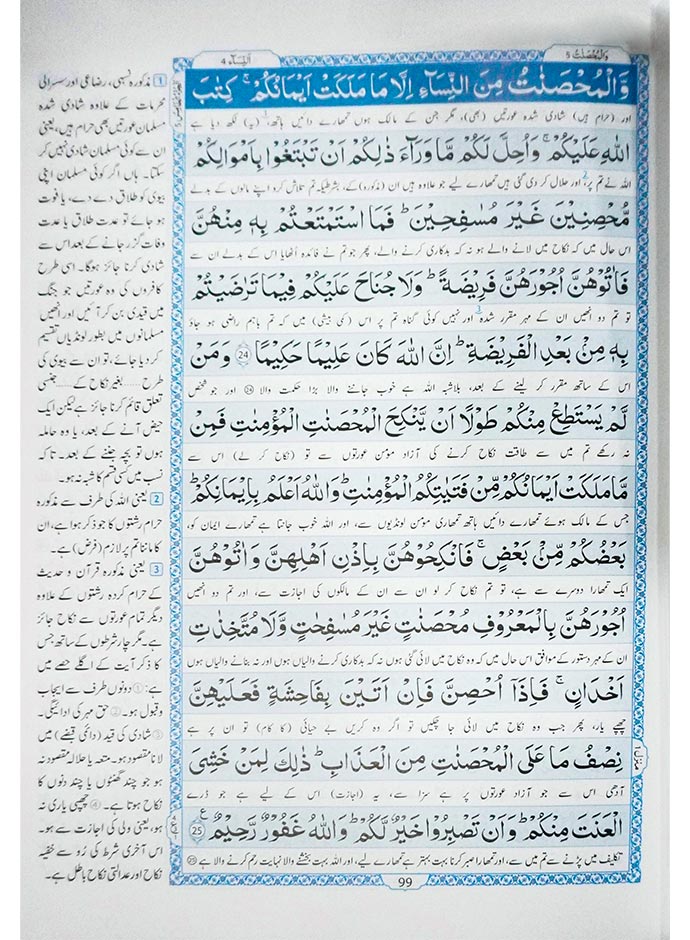 وَالْمُحْصَنٰتُ 5
اَلنِّسَآء 4
وَّالْمُحْصَنٰتُ مِنَ النِّسَآءِ اِلَّا مَا مَلَكَتْ اَيْمَانُكُمْ ۚ كِتٰبَ
اور (حرام ہیں) شادی شدہ عورتیں (بھی)، مگر جن کے مالک ہوں تمھارے دائیں ہاتھ، (یہ) لکھ دیا ہے
اللّٰهِ عَلَيْكُمْ ۚ وَاُحِلَّ لَكُمْ مَّا وَرَآءَ ذٰلِكُمْ اَنْ تَبْتَغُوْا بِاَمْوَالِكُمْ
اللہ نے تم پر، اور حلال کر دی گئی ہیں تمھارے لیے جو علاوہ ہیں ان (مذکورہ) کے، بشرطیکہ تم تلاش کرو اپنے مالوں کے بدلے
مُّحْصِنِيْنَ غَيْرَ مُسٰفِحِيْنَ ؕ فَمَا اسْتَمْتَعْتُمْ بِهٖ مِنْهُنَّ
اس حال میں کہ نکاح میں لانے والے ہو نہ کہ بدکاری کرنے والے، پھر جو تم نے فائدہ اٹھایا اس کے بدلے ان سے
فَاٰتُوْهُنَّ اُجُوْرَهُنَّ فَرِيْضَةً ؕ وَلَا جُنَاحَ عَلَيْكُمْ فِيْمَا تَرٰضَيْتُمْ
تو تم دو انھیں ان کے مہر مقرر شدہ اور نہیں کوئی گناہ تم پر اس (کی بیشی) میں کہ تم باہم راضی ہو جاؤ
بِهٖ مِنْۢ بَعْدِ الْفَرِيْضَةِ ؕ اِنَّ اللّٰهَ كَانَ عَلِيْمًا حَكِيْمًا 24 وَمَنْ
اس کے ساتھ مقرر کر لینے کے بعد، بلاشبہ اللہ ہے خوب جاننے والا بڑا حکمت والا 24 اور جو شخص
لَّمْ يَسْتَطِعْ مِنْكُمْ طَوْلًا اَنْ يَّنْكِحَ الْمُحْصَنٰتِ الْمُؤْمِنٰتِ فَمِنْ
نہ رکھے تم میں سے طاقت نکاح کرنے کی آزاد مؤمن عورتوں سے تو (نکاح کر لے) اس سے
مَّا مَلَكَتْ اَيْمَانُكُمْ مِّنْ فَتَيٰتِكُمُ الْمُؤْمِنٰتِ ؕ وَاللّٰهُ اَعْلَمُ بِاِيْمَانِكُمْ ؕ
جس کے مالک ہوئے تمھارے دائیں ہاتھ تمھاری مؤمن لونڈیوں سے، اور اللہ خوب جانتا ہے تمھارے ایمان کو،
بَعْضُكُمْ مِّنْۢ بَعْضٍ ۚ فَانْكِحُوْهُنَّ بِاِذْنِ اَهْلِهِنَّ وَاٰتُوْهُنَّ
ایک تمھارا دوسرے سے ہے، تو تم نکاح کر لو ان سے ان کے مالکوں کی اجازت سے، اور تم دو انھیں
اُجُوْرَهُنَّ بِالْمَعْرُوْفِ مُحْصَنٰتٍ غَيْرَ مُسٰفِحٰتٍ وَّلَا مُتَّخِذٰتِ
ان کے مہر دستور کے موافق اس حال میں کہ وہ نکاح میں لائی گئی ہوں نہ کہ بدکاری کرنے والیاں ہوں اور نہ بنانے والیاں ہوں
اَخْدَانٍ ۚ فَاِذَاۤ اُحْصِنَّ فَاِنْ اَتَيْنَ بِفَاحِشَةٍ فَعَلَيْهِنَّ
چھپے یار، پھر جب وہ نکاح میں لائی جا چکیں تو اگر وہ کریں بے حیائی (کا کام) تو ان پر ہے
نِصْفُ مَا عَلَى الْمُحْصَنٰتِ مِنَ الْعَذَابِ ؕ ذٰلِكَ لِمَنْ خَشِيَ
آدھی اس سے جو آزاد عورتوں پر ہے سزا سے، یہ (اجازت) اس کے لیے ہے جو ڈرے
الْعَنَتَ مِنْكُمْ ؕ وَاَنْ تَصْبِرُوْا خَيْرٌ لَّكُمْ ؕ وَاللّٰهُ غَفُوْرٌ رَّحِيْمٌ 25
تکلیف میں پڑنے سے تم میں سے، اور تمھارا صبر کرنا بہت بہتر ہے تمھارے لیے، اور اللہ بہت بخشنے والا نہایت رحم کرنے والا ہے 25
99
1 مذکورہ نسبی، رضاعی اور سسرالی
محرمات کے علاوہ شادی شدہ
مسلمان عورتیں بھی حرام ہیں، یعنی
ان سے کوئی مسلمان شادی نہیں کر
سکتا۔ ہاں اگر کوئی مسلمان اپنی
بیوی کو طلاق دے دے، یا فوت
ہو جائے تو عدت طلاق یا عدت
وفات گزر جانے کے بعد اس سے
شادی کرنا جائز ہوگا۔ اسی طرح
کافروں کی وہ عورتیں جو جنگ
میں قیدی بن کر آئیں اور انھیں
مسلمانوں میں بطور لونڈیاں تقسیم
کر دیا جائے، تو ان سے بیوی کی
طرح ..... بغیر نکاح کے ..... جنسی
تعلق قائم کرنا جائز ہے لیکن ایک
حیض آنے کے بعد، یا وہ حاملہ
ہوں تو بچہ جننے کے بعد۔ تاکہ
نسب میں کسی قسم کا شبہ نہ ہو۔
2 یعنی اللہ کی طرف سے مذکورہ
حرام رشتوں کا جو ذکر ہوا ہے، ان
کا ماننا تم پر لازم (فرض) ہے۔
3 یعنی مذکورہ قرآن و حدیث
کے حرام کردہ رشتوں کے علاوہ
دیگر تمام عورتوں سے نکاح جائز
ہے۔ مگر چار شرطوں کے ساتھ جس
کا ذکر آیت کے اگلے حصے میں
ہے: ① دونوں طرف سے ایجاب
و قبول ہو۔ ② حق مہر کی ادائیگی۔
③ شادی کی قید (دائمی قبضے) میں
لانا مقصود ہو۔ متعہ یا حلالہ مقصود نہ
ہو جو چند گھنٹوں یا چند دنوں کا
نکاح ہوتا ہے۔ ④ چھپی یاری نہ
ہو، یعنی ولی کی اجازت سے ہو۔
اس آخری شرط کی رُو سے خفیہ
نکاح اور عدالتی نکاح باطل ہے۔